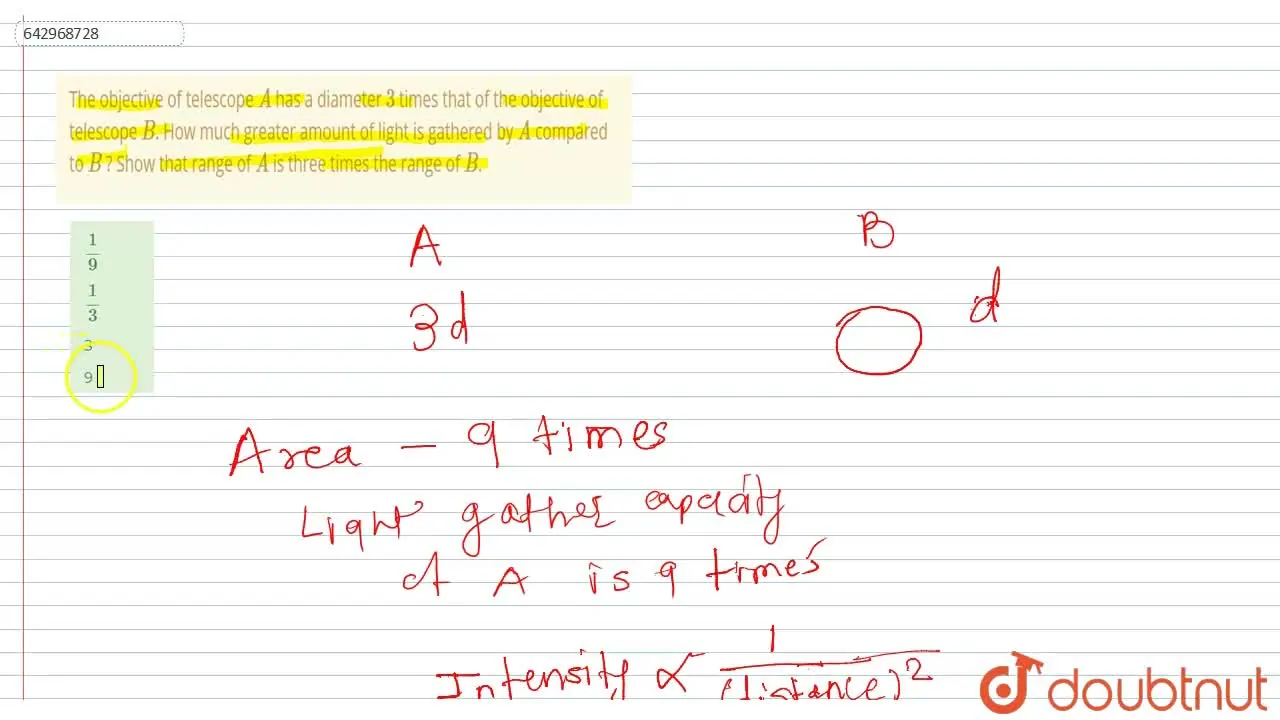 642968728
The objective of telescope A has a diameter 3 times that of the objective of
telescope B. How much greater amount of light is gathered by A compared
to B ? Show that range of A is three times the range of B.
1/9
1/3
3
9
A B
3d d
Area – 9 times
Light gather capacity
of A is 9 times
Intensity ∝ 1/(distance)²
doubtnut